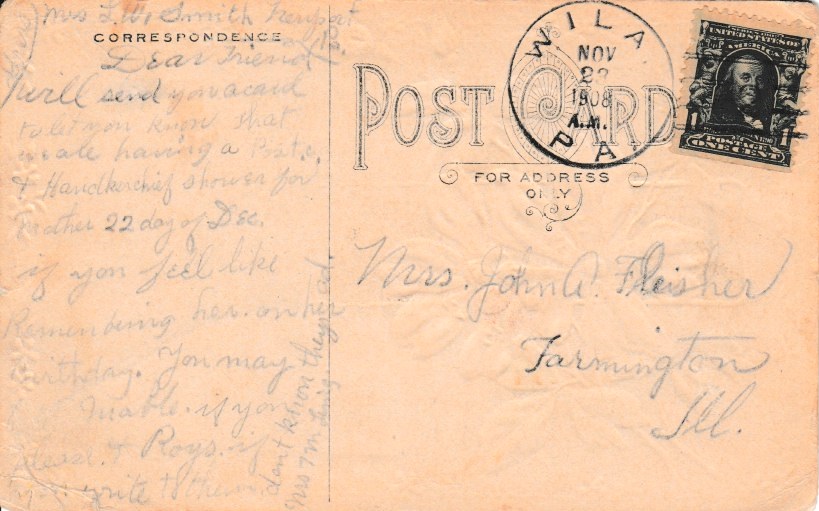 Mrs L. W. Smith
CORRESPONDENCE
Dear Friend
will send you a card
to let you know that
we are having a Post c.
& Handkerchief shower for
Mother 22 day of Dec.
if you feel like
Remembering her. on her
birthday. You may
Mable. if you
please. & Roys. if
you write to them.
dont know they ad.
Mrs
POST CARD
FOR ADDRESS
ONLY
WILA
NOV
1908
A.M.
PA
UNITED STATES
OF AMERICA
1 1
POSTAGE
ONE CENT
Mrs. John A. Fleisher
Farmington
Ill.